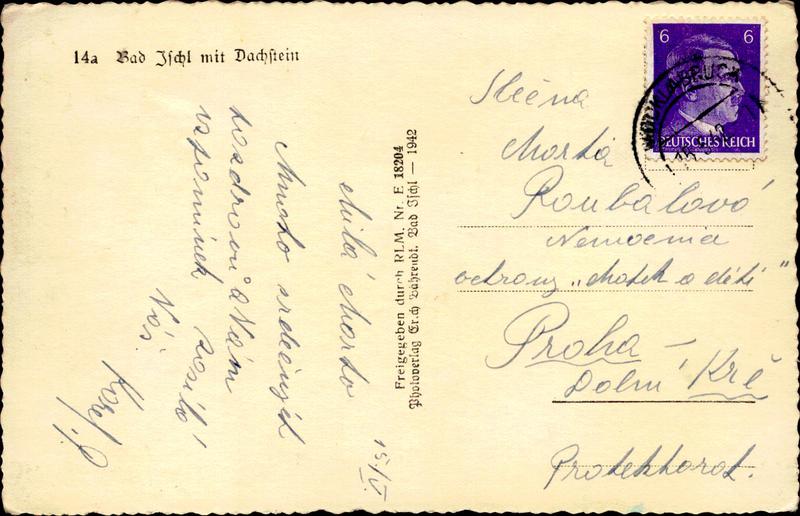 14a Bad Ischl mit Dachstein
6 6
DEUTSCHES REICH
Freigegeben durch RLM. Nr. E 18204
Photoverlag Erich Bährendt. Bad Ischl — 1942
15/V.
Milá Marto
Mnoho srdečných
pozdravů a Vám
vzpomínek zasílá
Váš
Slečna
Marta
Roubalová
Nemocnia
ochrany „Matek a dětí"
Praha —
Dolní Krč
Protektorat.